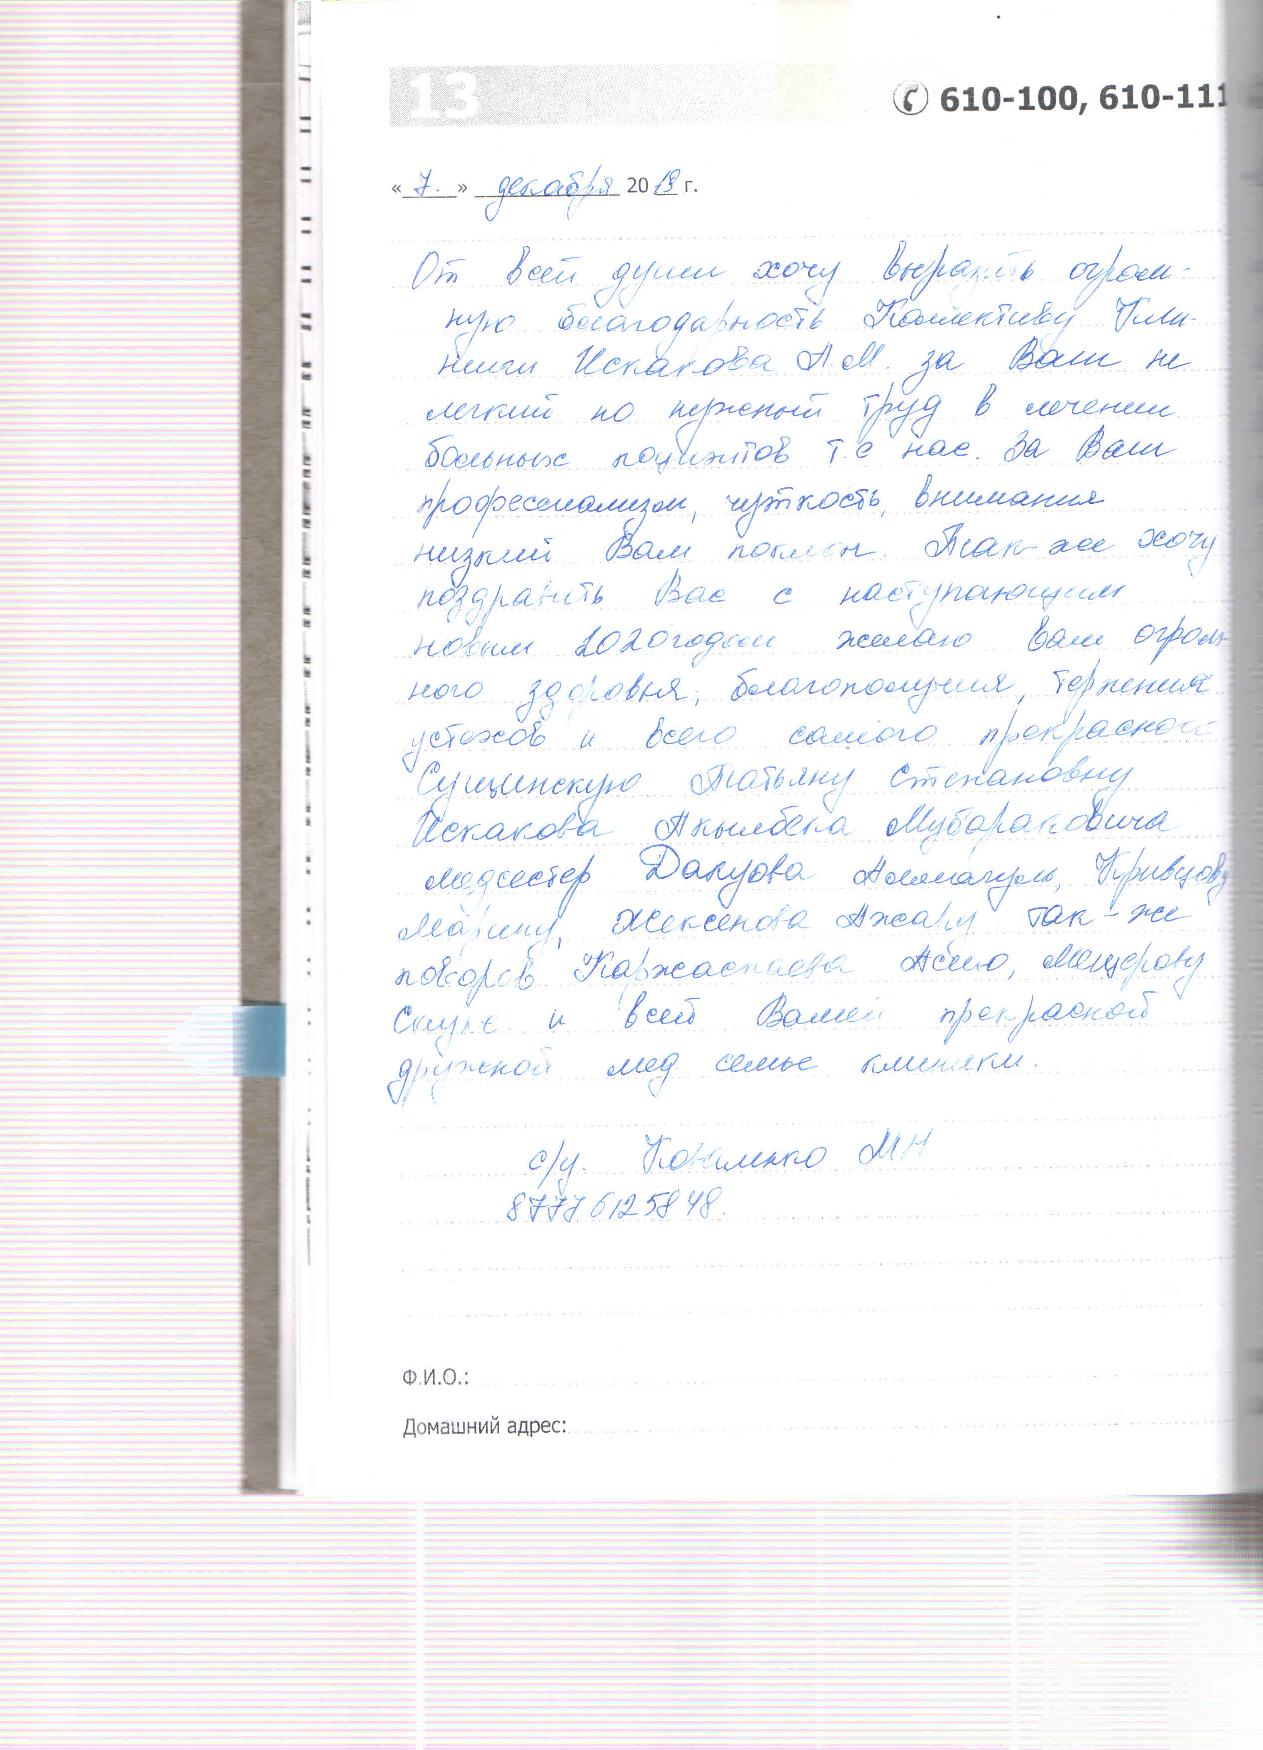 13
610-100, 610-111
« 7. » декабря 2019 г.
От всей души хочу выразить огром-
ную благодарность Коллективу Кли-
ники Искакова А.М. за Ваш не
легкий но нужный труд в лечении
больных пациентов т.е нас. За Ваш
профессионализм, чуткость, внимания
низкий Вам поклон. Так-же хочу
поздравить Вас с наступающим
новым 2020годом желаю Вам огром-
ного здоровья, благополучия, терпения
успехов и всего самого прекрасного
Сущинскую Татьяну Степановну
Искакова Акылбека Мубараковича
медсестер Дакуова Алмагуль, Кривцову
Марину, Жексенова Ажару так-же
поворов Каржаспаева Асию, Мещерову
и всей Вашей прекрасной
дружной мед семье клиники.
с/у. Коваленко МН
87776125848.
Ф.И.О.:
Домашний адрес: